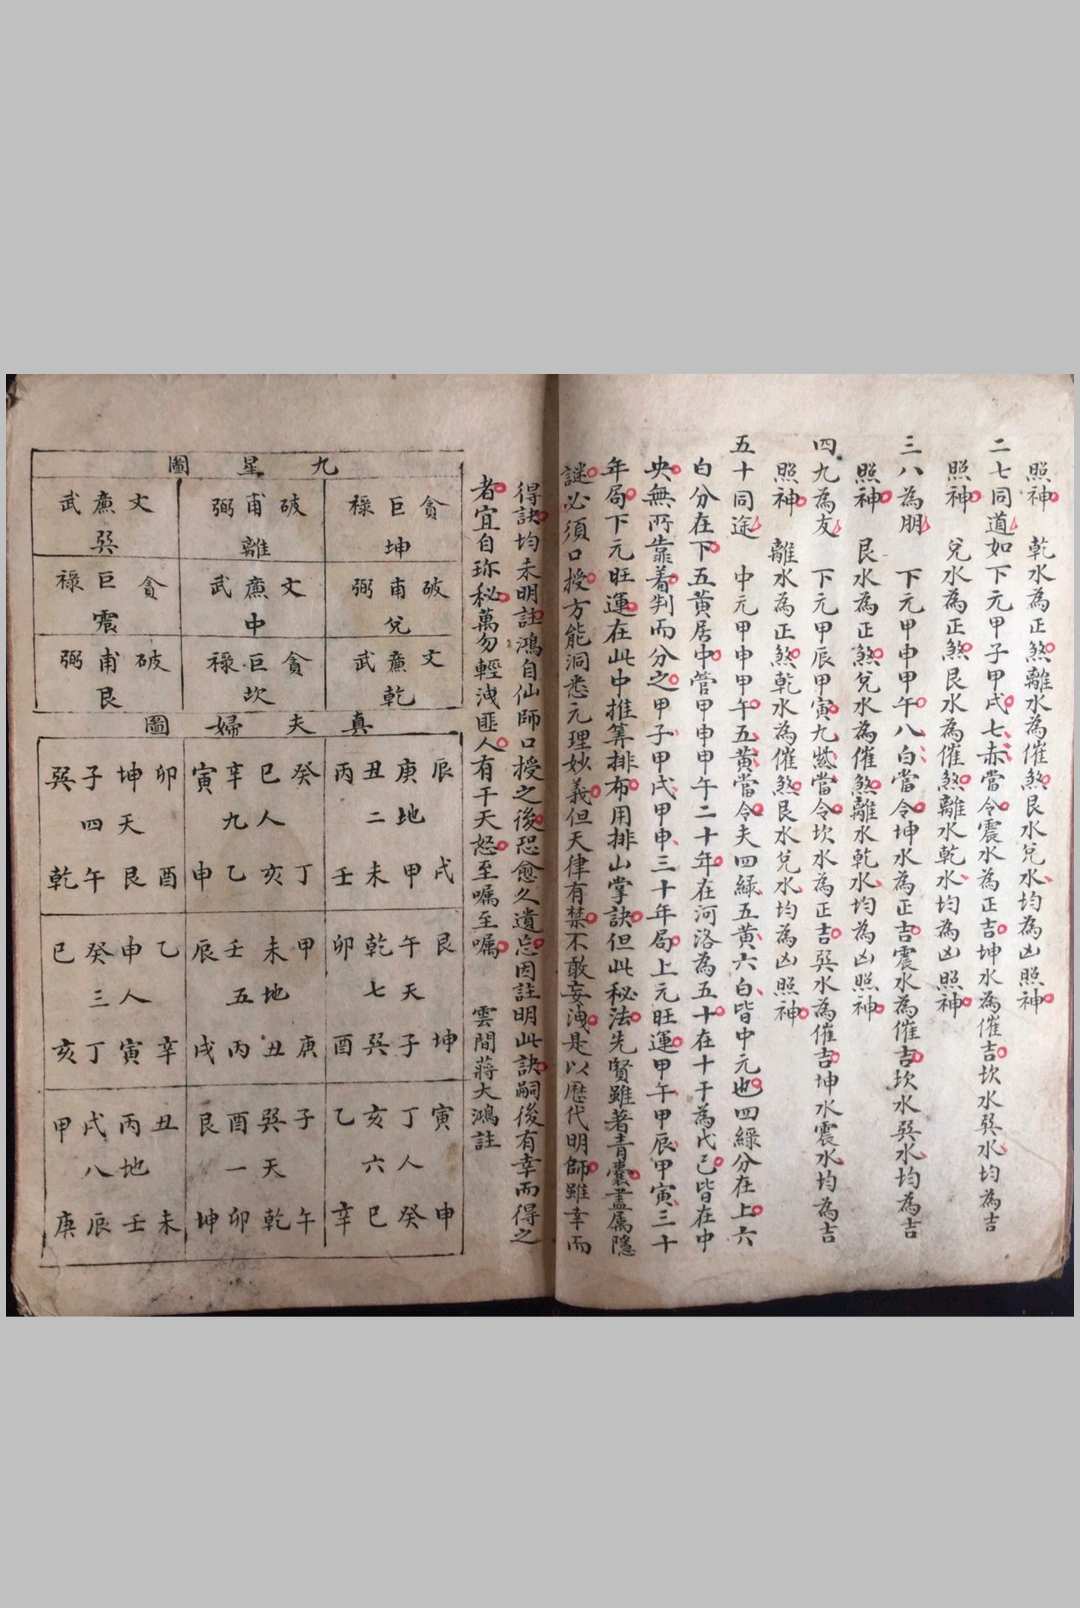 照神　乾水為正煞離水為催煞艮水兌水均為凶照神
二七同道如下元甲子甲戌七赤當令震水為正吉坤水為催吉坎水巽水均為吉
照神　兌水為正煞艮水為催煞離水乾水均為凶照神
三八為朋　下元甲申甲午八白當令坤水為正吉震水為催吉坎水巽水均為吉
照神　艮水為正煞兌水為催煞離水乾水均為凶照神
四九為友　下元甲辰甲寅九紫當令坎水為正吉巽水為催吉坤水震水均為吉
照神　離水為正煞乾水為催煞艮水兌水均為凶照神
五十同途　中元甲申甲午五黃當令夫四綠五黃六白皆中元也四綠分在上六
白分在下五黃居中管甲申甲午二十年在河洛為五十在十干為戊己皆在中
央無所靠着判而分之甲子甲戌甲申三十年局上元旺運甲午甲辰甲寅三十
年局下元旺運在此中推算排布用排山掌訣但此秘法先賢雖著青囊盡屬隱
謎必須口授方能洞悉元理妙義但天律有禁不敢妄洩是以歷代明師雖幸而
得訣均未明註鴻自仙師口授之後恐愈久遺忘因註明此訣嗣後有幸而得之
者宜自珍秘萬勿輕洩匪人有干天怒至囑至囑　雲間蔣大鴻註
九星圖
貪巨祿　坤
破甫弼　離
文亷武　巽
破甫弼　兌
文亷武　中
貪巨祿　震
文亷武　乾
貪巨祿　坎
破甫弼　艮
真夫婦圖
辰庚丑丙
地二
戌甲未壬
癸巳辛寅
人九
丁亥乙申
卯坤子巽
天四
酉艮午乾
艮午乾卯
天七
坤子巽酉
甲未壬辰
地五
庚丑丙戌
乙申癸巳
人三
辛寅丁亥
寅丁亥乙
人六
申癸巳辛
子巽酉艮
天一
午乾卯坤
丑丙戌甲
地八
未壬辰庚